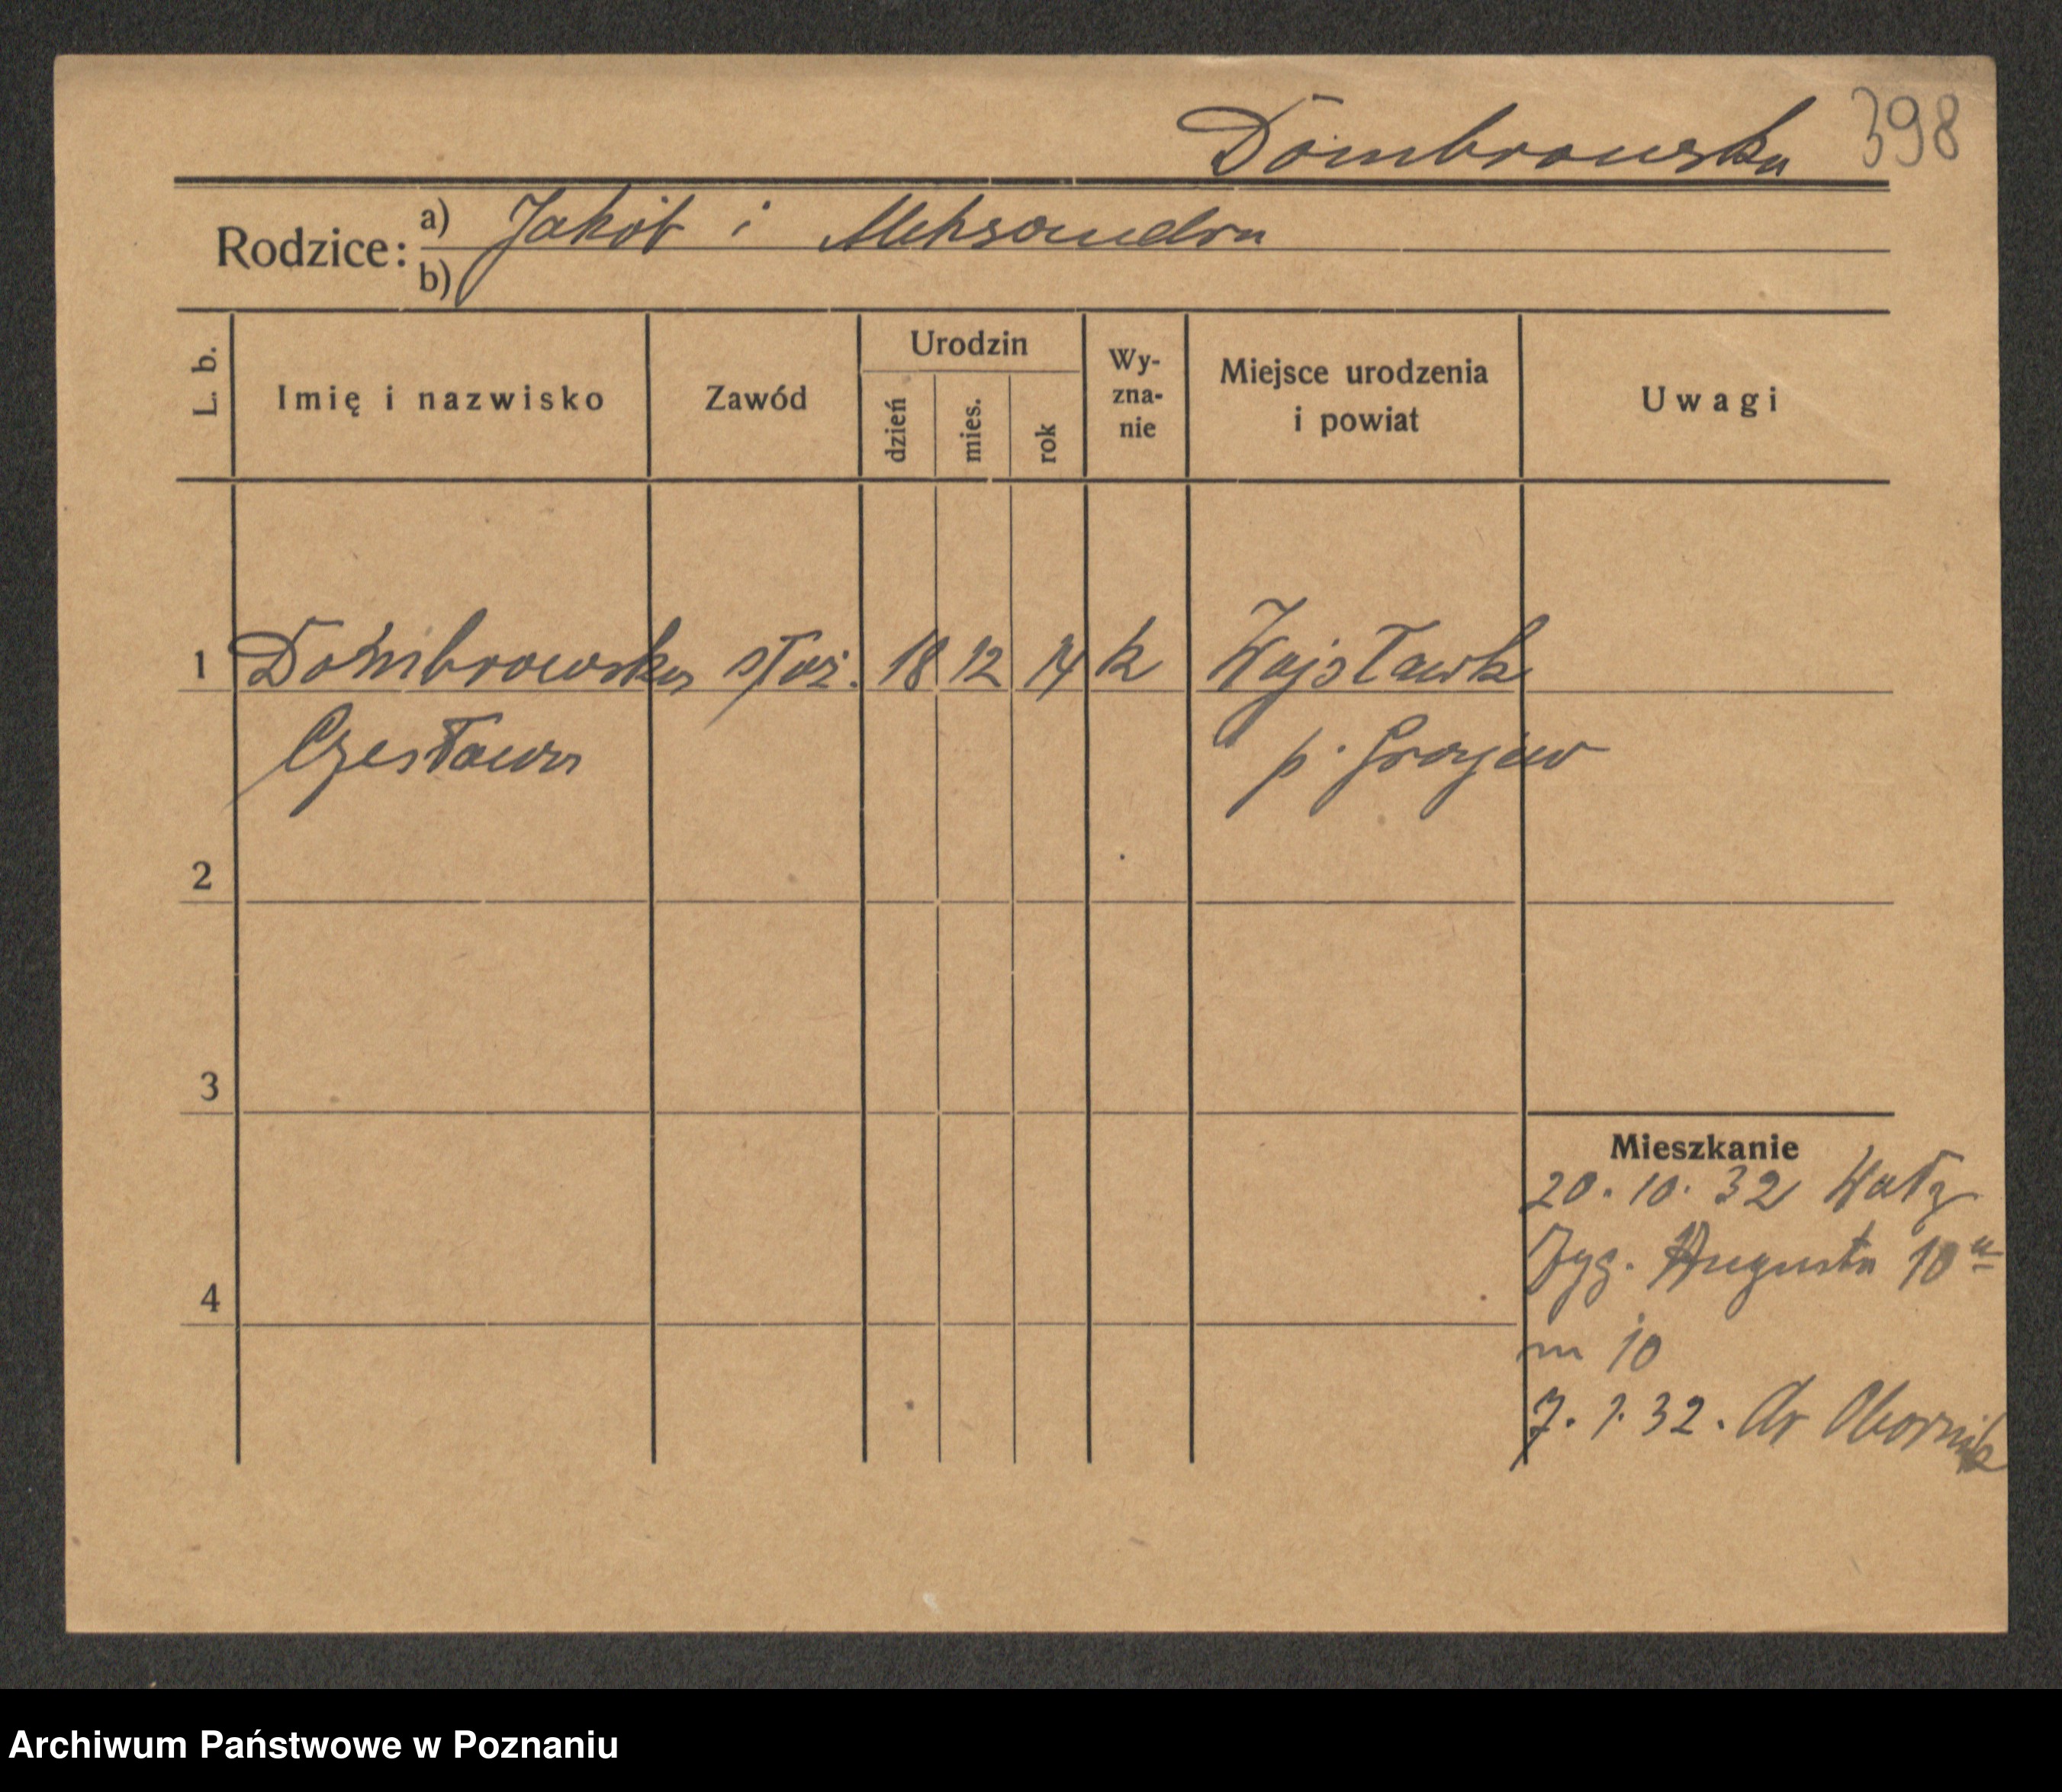 Dombrowska 398
Rodzice: a) Jakób i Aleksandra
b)
L. b. Imię i nazwisko Zawód Urodzin dzień mies. rok Wy-zna-nie Miejsce urodzenia i powiat Uwagi
1 Dombrowska służ. 18 12 14 k Wojsławk
Czesława p.
2
3
Mieszkanie
20. 10. 32
Zyg. Augusta 10a
4
m 10
7. 32. dr Obornik
Archiwum Państwowe w Poznaniu